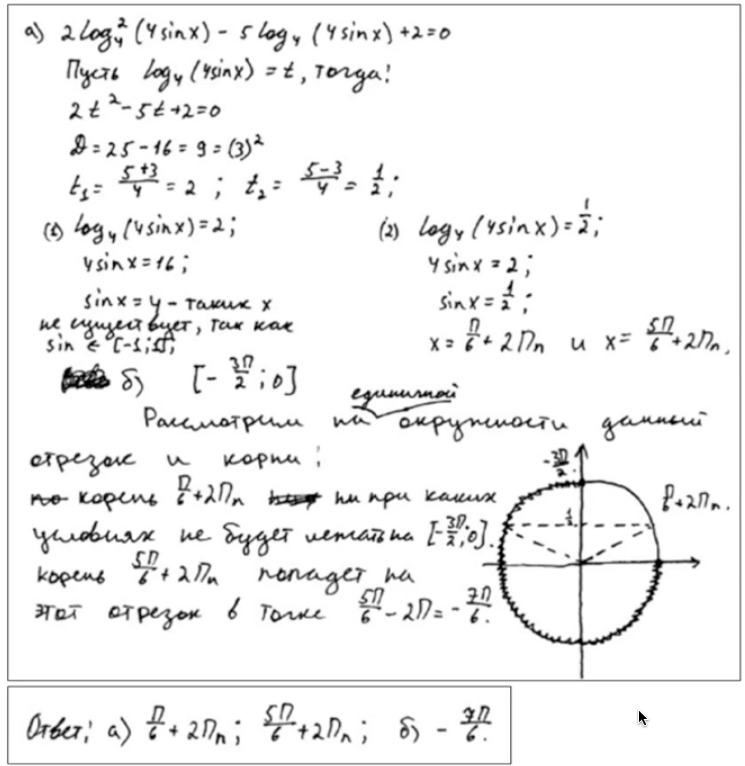 а) 2log₄²(4sinx) - 5log₄(4sinx)+2=0
Пусть log₄(4sinx) = t, тогда:
2t²-5t+2=0
D=25-16=9=(3)²
t₁= (5+3)/4 = 2 ; t₂= (5-3)/4 = 1/2;
(1) log₄(4sinx)=2;
4sinx=16;
sinx=4 - таких x
не существует, так как
sin ∈ [-1;1];
(2) log₄(4sinx)=1/2;
4sinx=2;
sinx=1/2;
x= П/6 + 2Пn и x= 5П/6 + 2Пn,
б) [-3П/2; 0]
единичной
Рассмотрим на окружности данный
отрезок и корни:
но корень П/6+2Пn ни при каких
условиях не будет лежать на [-3П/2;0].
корень 5П/6 + 2Пn попадет на
этот отрезок в точке 5П/6 - 2П = -7П/6.
-3П/2.
1/2
П/6+2Пn.
Ответ: а) П/6 + 2Пn; 5П/6+2Пn; б) -7П/6.